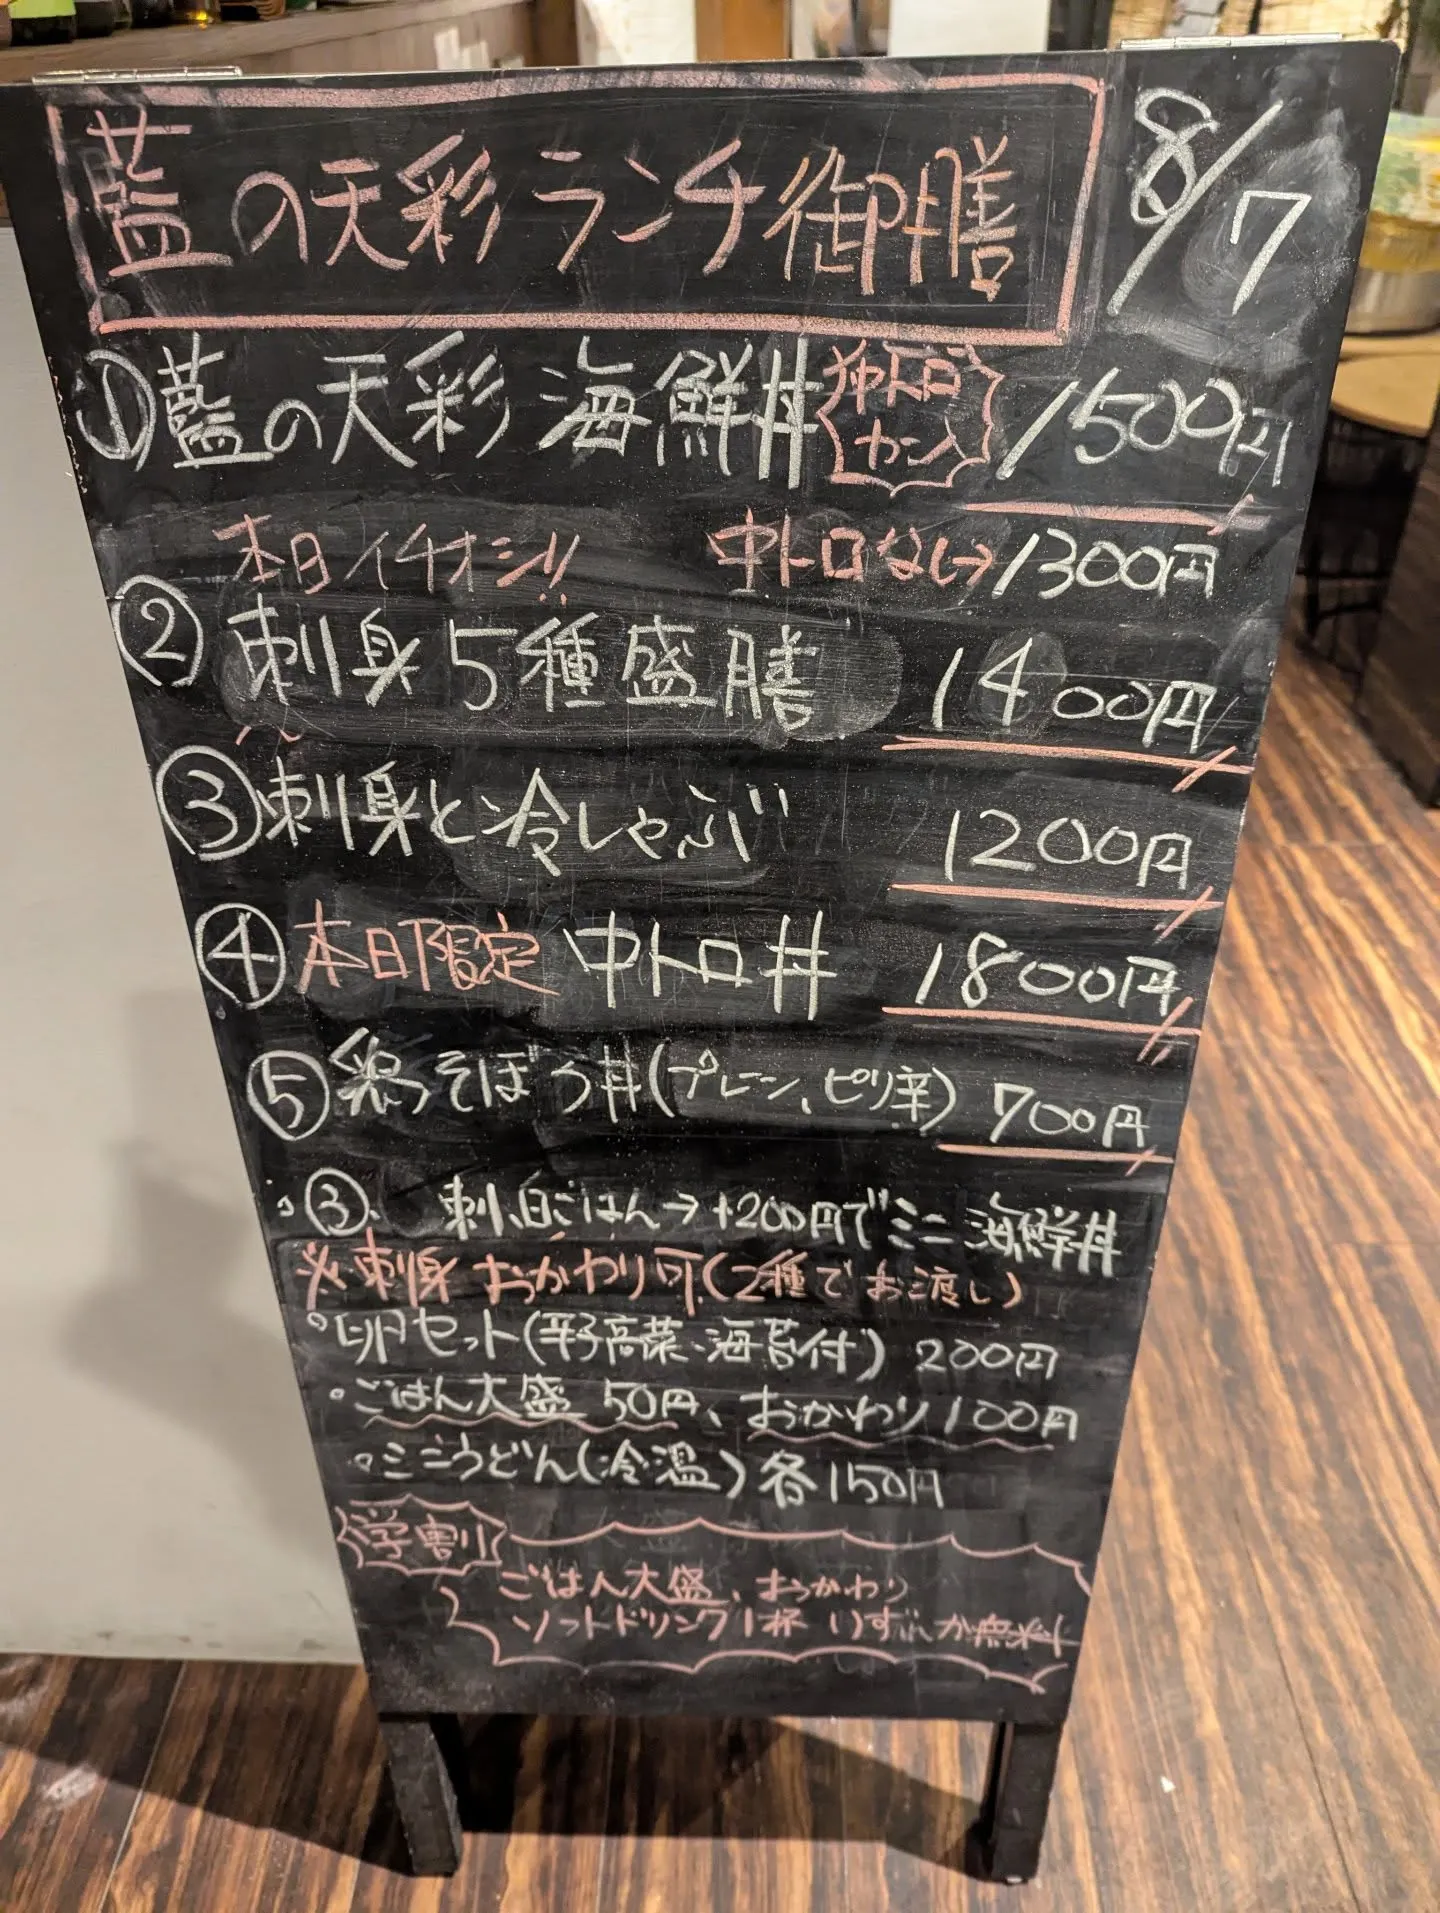 藍の天彩ランチ御膳
8/7
①藍の天彩 海鮮丼 中トロ カン入 1500円
本日イチオシ!! 中トロなし→1300円
②刺身5種盛膳 1400円
③刺身と冷しゃぶ 1200円
④本日限定 中トロ丼 1800円
⑤鶏そぼろ丼(プレーン、ピリ辛) 700円
③、刺、白ごはん→+200円でミニ海鮮丼
※刺身おかわり可(2種でお渡し)
○卵セット(辛子高菜・海苔付) 200円
○ごはん大盛 50円、おかわり100円
○ミニうどん(冷温)各150円
学割
ごはん大盛、おかわり
ソフトドリンク1杯 いずれか無料